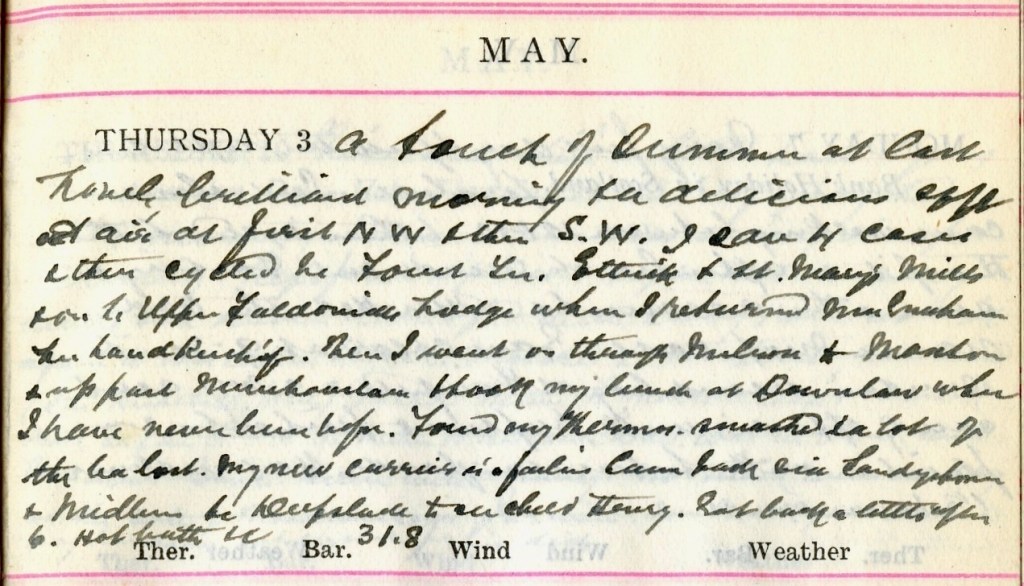 MAY.
THURSDAY 3 A touch of Summer at last
Lovely brilliant morning & a delicious soft
air at first NW & then S.W. I saw 4 cases
& then cycled to Forest Ln. Ettrick & St. Mary's Mills
& on to Upper Faldonside Lodge when I returned Mrs
her handkerchief. Then I went on through &
& up past & took my lunch at when
I have never been before. Found my Thermos smashed & a lot of
the tea lost. My new carrier is a failure Came back via
& Midlem to to see child Henry. Got back a little after
6. Hot bath
Ther. Bar. 31.8 Wind Weather